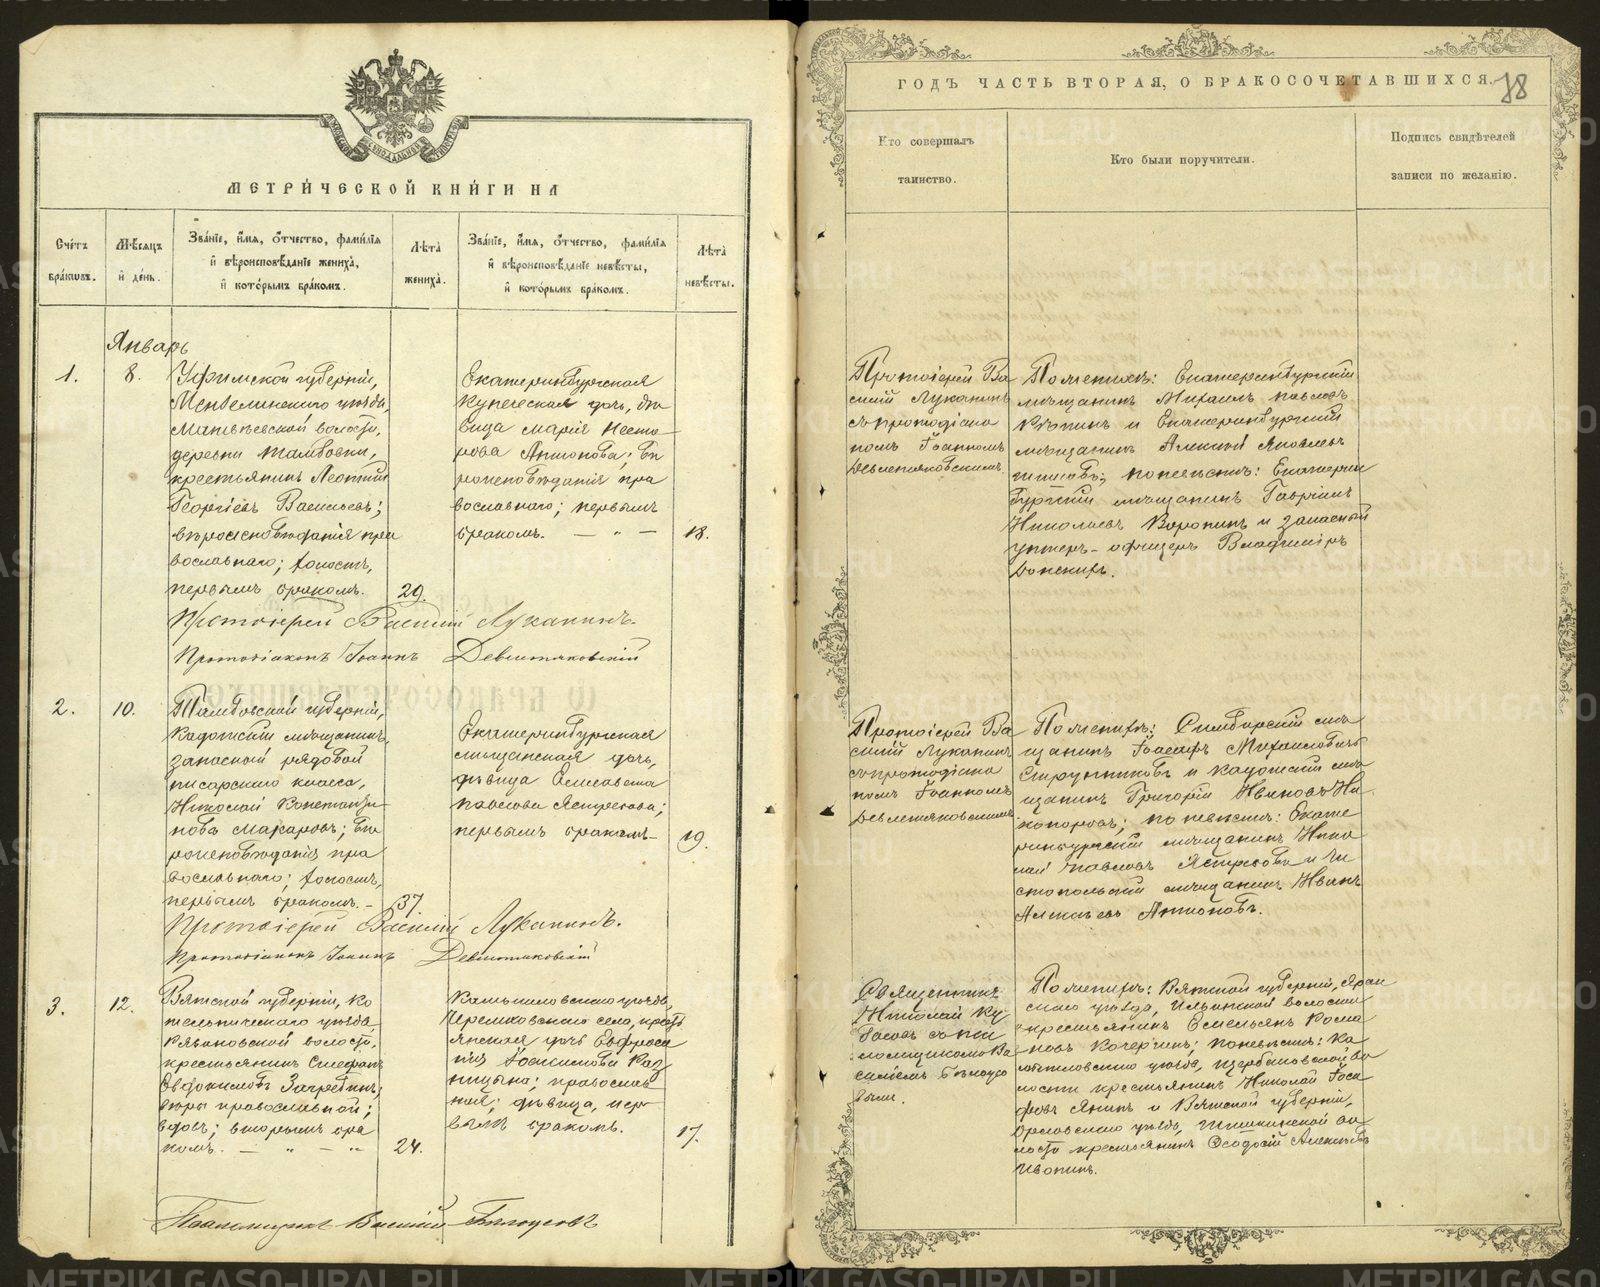 МЕТРИ́ЧЕСКОЙ КНИ́ГИ НА
Сче́тъ бра́ковъ.
Мѣ́сяцъ и́ де́нь.
Зва́нїе, и́мя, о́тчество, фами́лїя и́ вѣроисповѣ́данїе жениха̀, и́ кото́рымъ бра́комъ.
Лѣта̀ жениха̀.
Зва́нїе, и́мя, о́тчество, фами́лїя и́ вѣроисповѣ́данїе невѣ́сты, и́ кото́рымъ бра́комъ.
Лѣта̀ невѣ́сты.
Январь
1.
8.
Уфимской губерніи,
Мензелинскаго уѣзда,
Матвѣевской волости,
деревни Тамбовки,
крестьянинъ Леонтій
Георгіевъ Васильевъ;
вѣроисповѣданія пра
вославнаго; холостъ,
первымъ бракомъ.
29.
Екатеринбургская
купеческая дочь, дѣ
вица Марія Несто
рова Антонова; вѣ
роисповѣданія пра
вославнаго; первымъ
бракомъ. — „ —
18.
Протоіерей Василій Луканинъ.
Протодіаконъ Іоаннъ Девлетяковскій
2.
10.
Тамбовской губерніи,
Кадомскій мѣщанинъ,
запасный рядовой
писарскаго класса,
Николай Константи
новъ Макаровъ; вѣ
роисповѣданія пра
вославнаго; холостъ,
первымъ бракомъ. –
37.
Екатеринбургская
мѣщанская дочь,
дѣвица Елисавета
Павлова Ястребова;
первымъ бракомъ
19.
Протоіерей Василій Луканинъ.
Протодіаконъ Іоаннъ Девлетяковскій
3.
12.
Вятской губерніи, Ко
тельническаго уѣзда
крестьянинъ Стефанъ
Евдокимовъ Загребинъ;
вѣры православной;
вдовъ; вторымъ бра
комъ. — „ — „
24.
Камышловскаго уѣзда,
янская дочь Евфроси
нія
православ
ная; дѣвица, пер
вымъ бракомъ.
17.
Псаломщикъ Василій Бѣлоусовъ
ГОДЪ ЧАСТЬ ВТОРАЯ, О БРАКОСОЧЕТАВШИХСЯ.
78
Кто совершалъ таинство.
Кто были поручители.
Подпись свидѣтелей записи по желанію.
Протоіерей Ва
силій Луканинъ
съ протодіако
номъ Іоанномъ
Девлетяковскимъ.
По женихѣ: Екатеринбургскій
мѣщанинъ Михаилъ Павловъ
и Екатеринбургскій
мѣщанинъ Алексѣй Яковлевъ
по невѣстѣ: Екатерин
бургскій мѣщанинъ Гавріилъ
Николаевъ Воронинъ и запасный
унтеръ-офицеръ Владиміръ
Донскихъ.
Протоіерей Ва
силій Луканинъ
съ протодіако
номъ Іоанномъ
Девлетяковскимъ
По женихѣ: Симбирскій мѣ
щанинъ Іоасафъ Михаиловичъ
Струнниковъ и Кадомскій мѣ
щанинъ Григорій Ивановъ Ни
каноровъ; по невѣстѣ: Екате
ринбургскій мѣщанинъ Нико
лай Павловъ Ястребовъ и Чи
стопольскій мѣщанинъ Иванъ
Алексѣевъ Антоновъ.
Священникъ
Николай Ку
съ пса
ломщикомъ Ва
силіемъ Бѣлоусо
вымъ.
По женихѣ: Вятской губерніи, Яран
скаго уѣзда, Ильинской волости
крестьянинъ Емельянъ Рома
новъ по невѣстѣ: Ка
мышловскаго уѣзда, Щербаковской во
лости крестьянинъ Николай Іоса
фовъ Янинъ и Вятской губерніи,
Орловскаго уѣзда, во
лости крестьянинъ Ѳеодосій